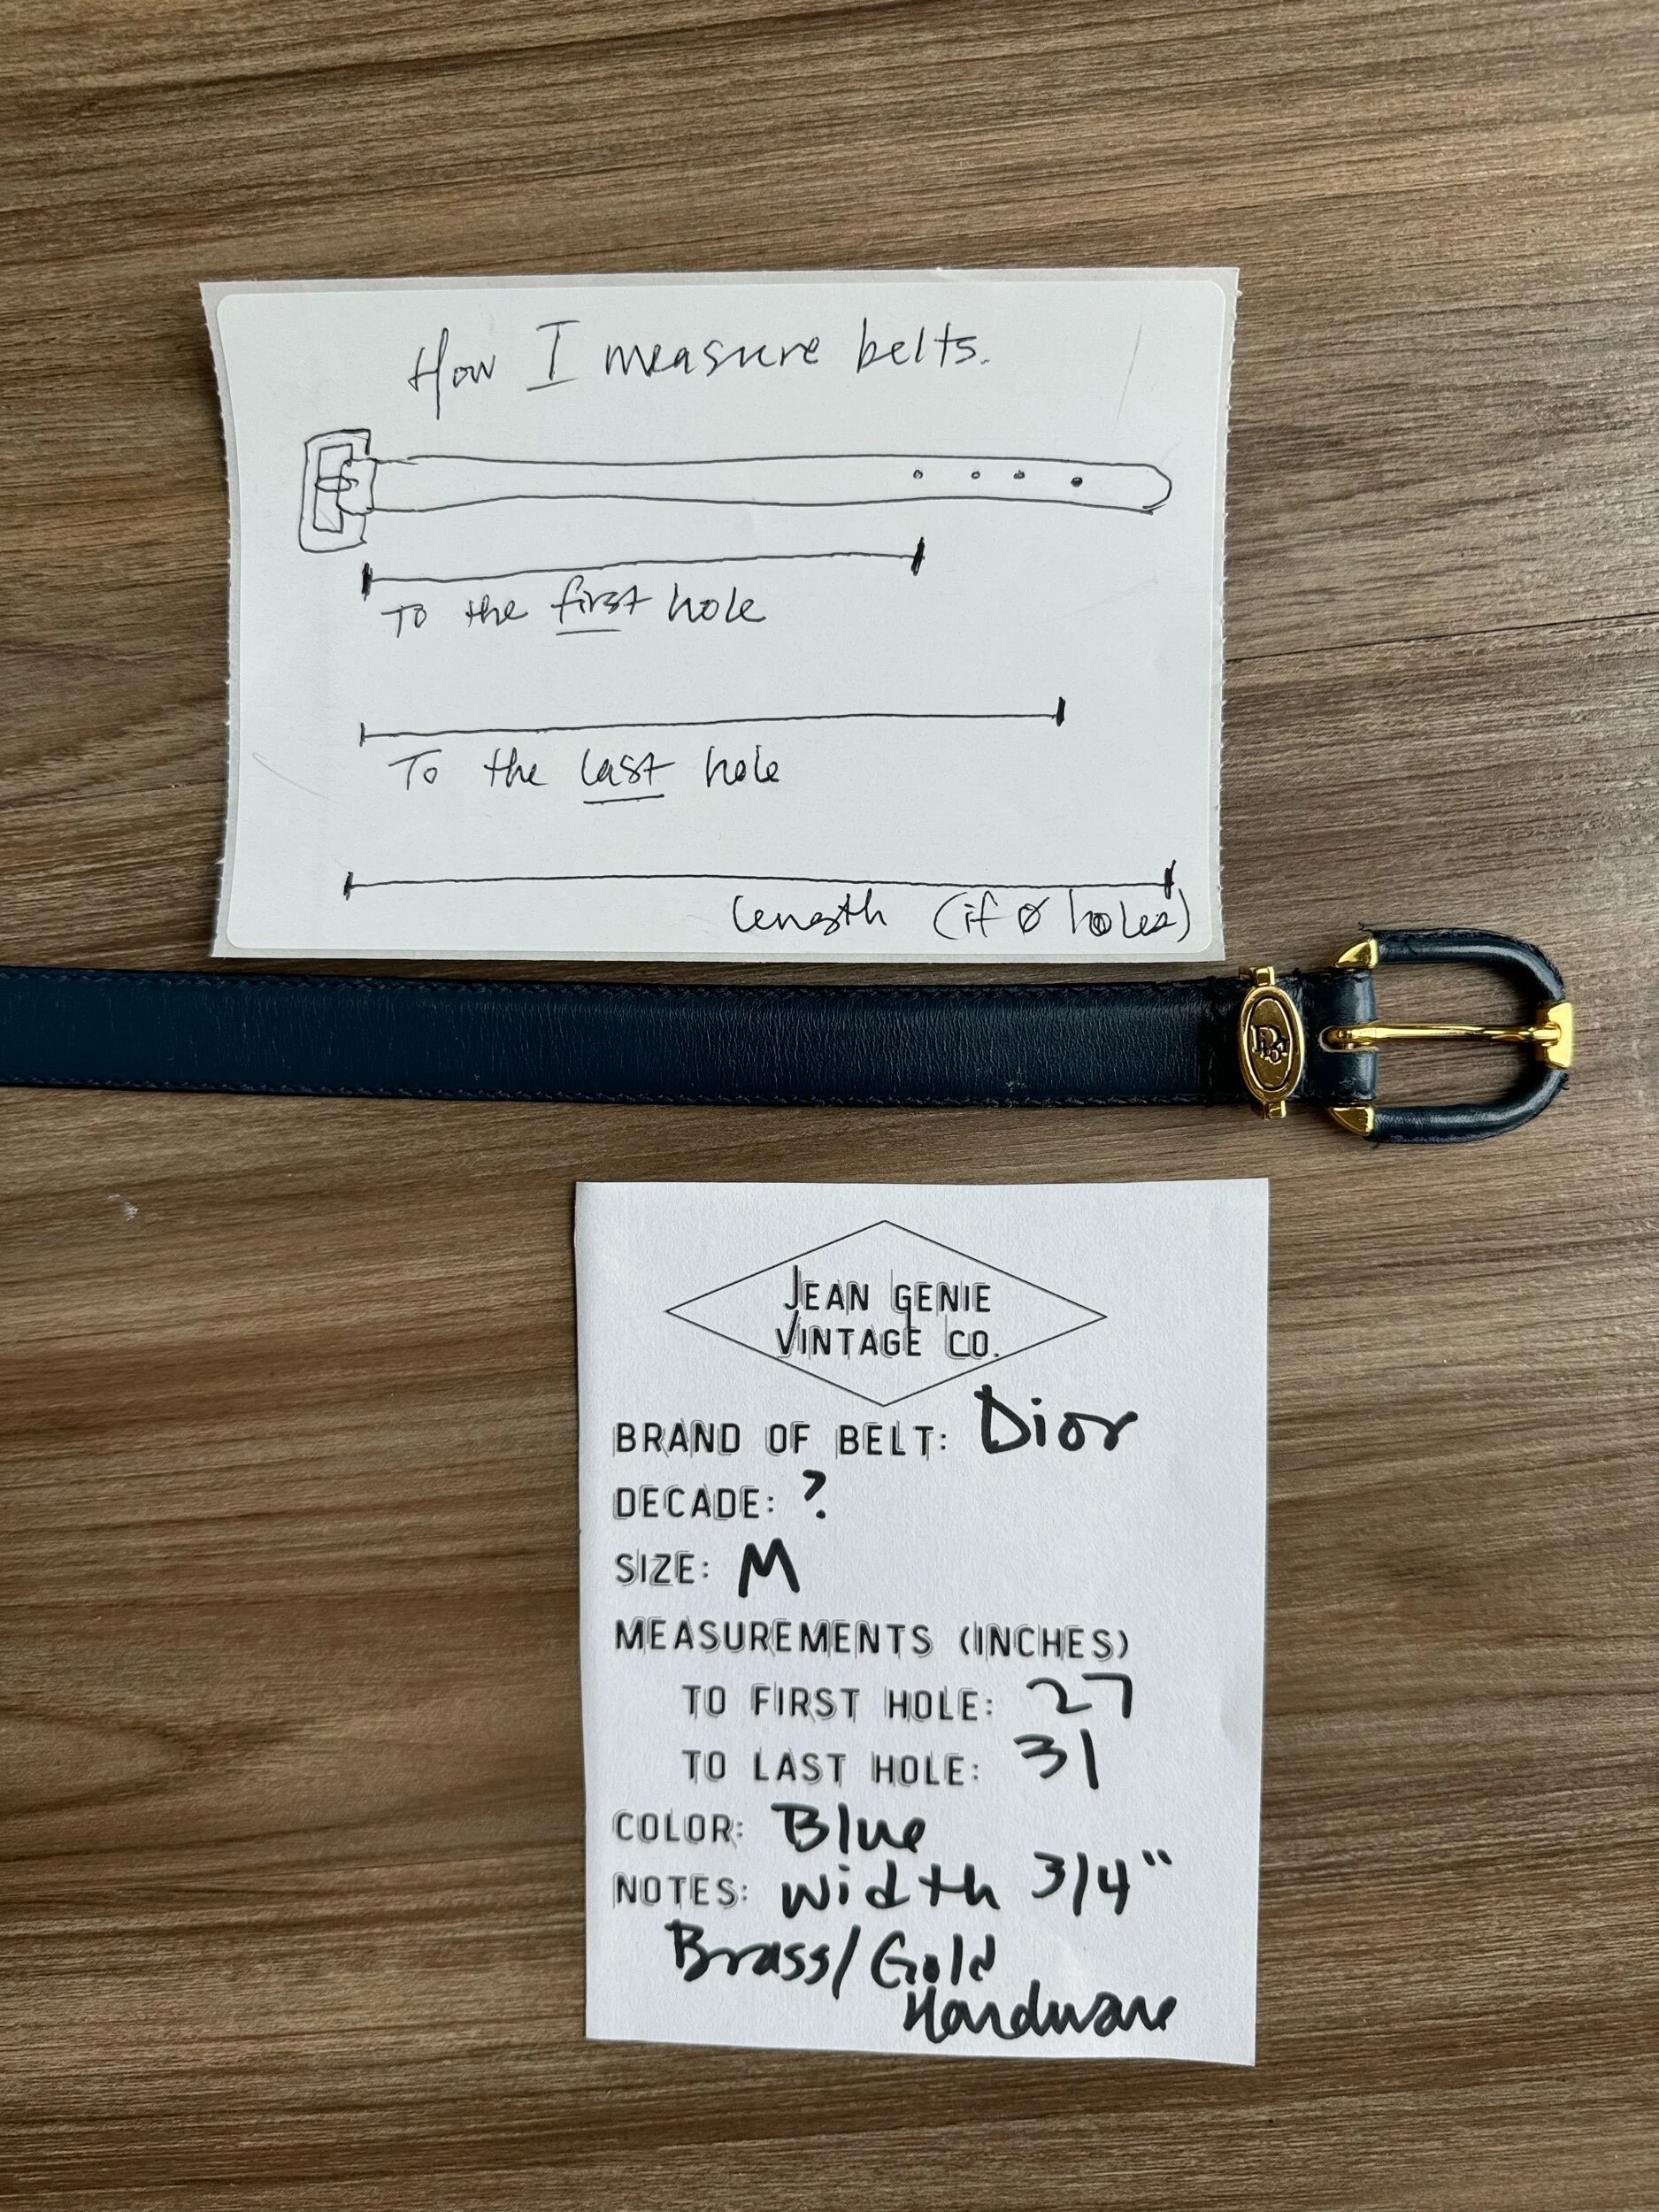 How I measure belts.
To the first hole
To the last hole
length (if Ø holes)
Dior
JEAN GENIE
VINTAGE CO.
BRAND OF BELT: Dior
DECADE: ?
SIZE: M
MEASUREMENTS (INCHES)
TO FIRST HOLE: 27
TO LAST HOLE: 31
COLOR: Blue
NOTES: Width 3/4"
Brass/Gold
Hardware